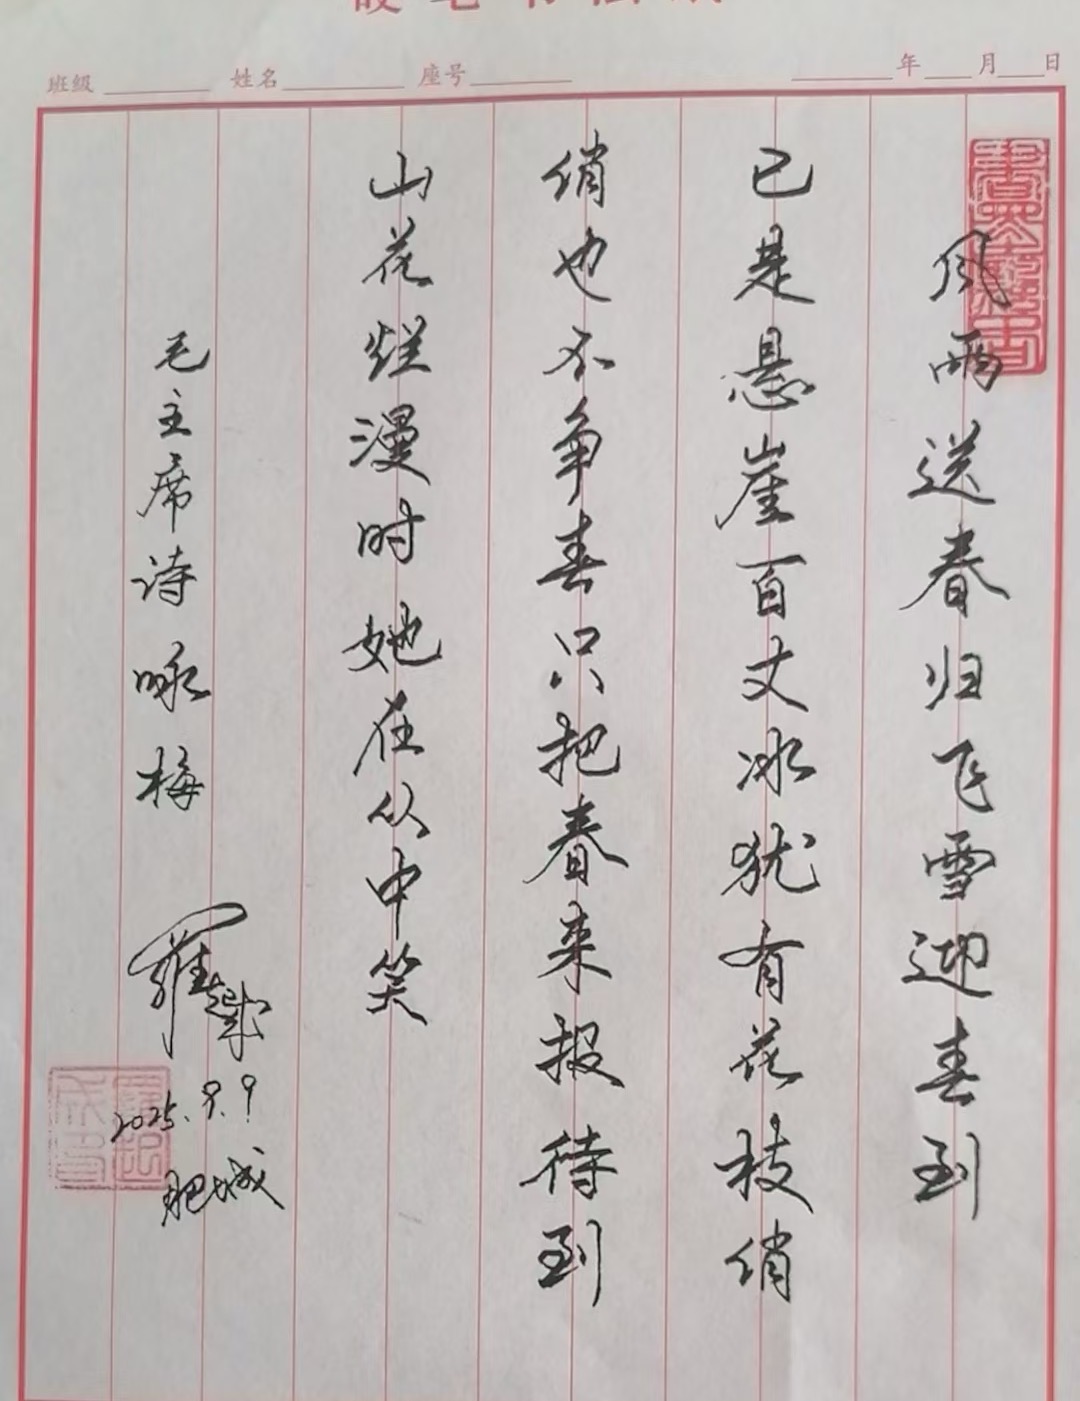 班级 姓名 座号 年 月 日
风雨送春归飞雪迎春到
已是悬崖百丈冰犹有花枝俏
俏也不争春只把春来报待到
山花烂漫时她在丛中笑
毛主席诗咏梅
2025.9.9
肥城